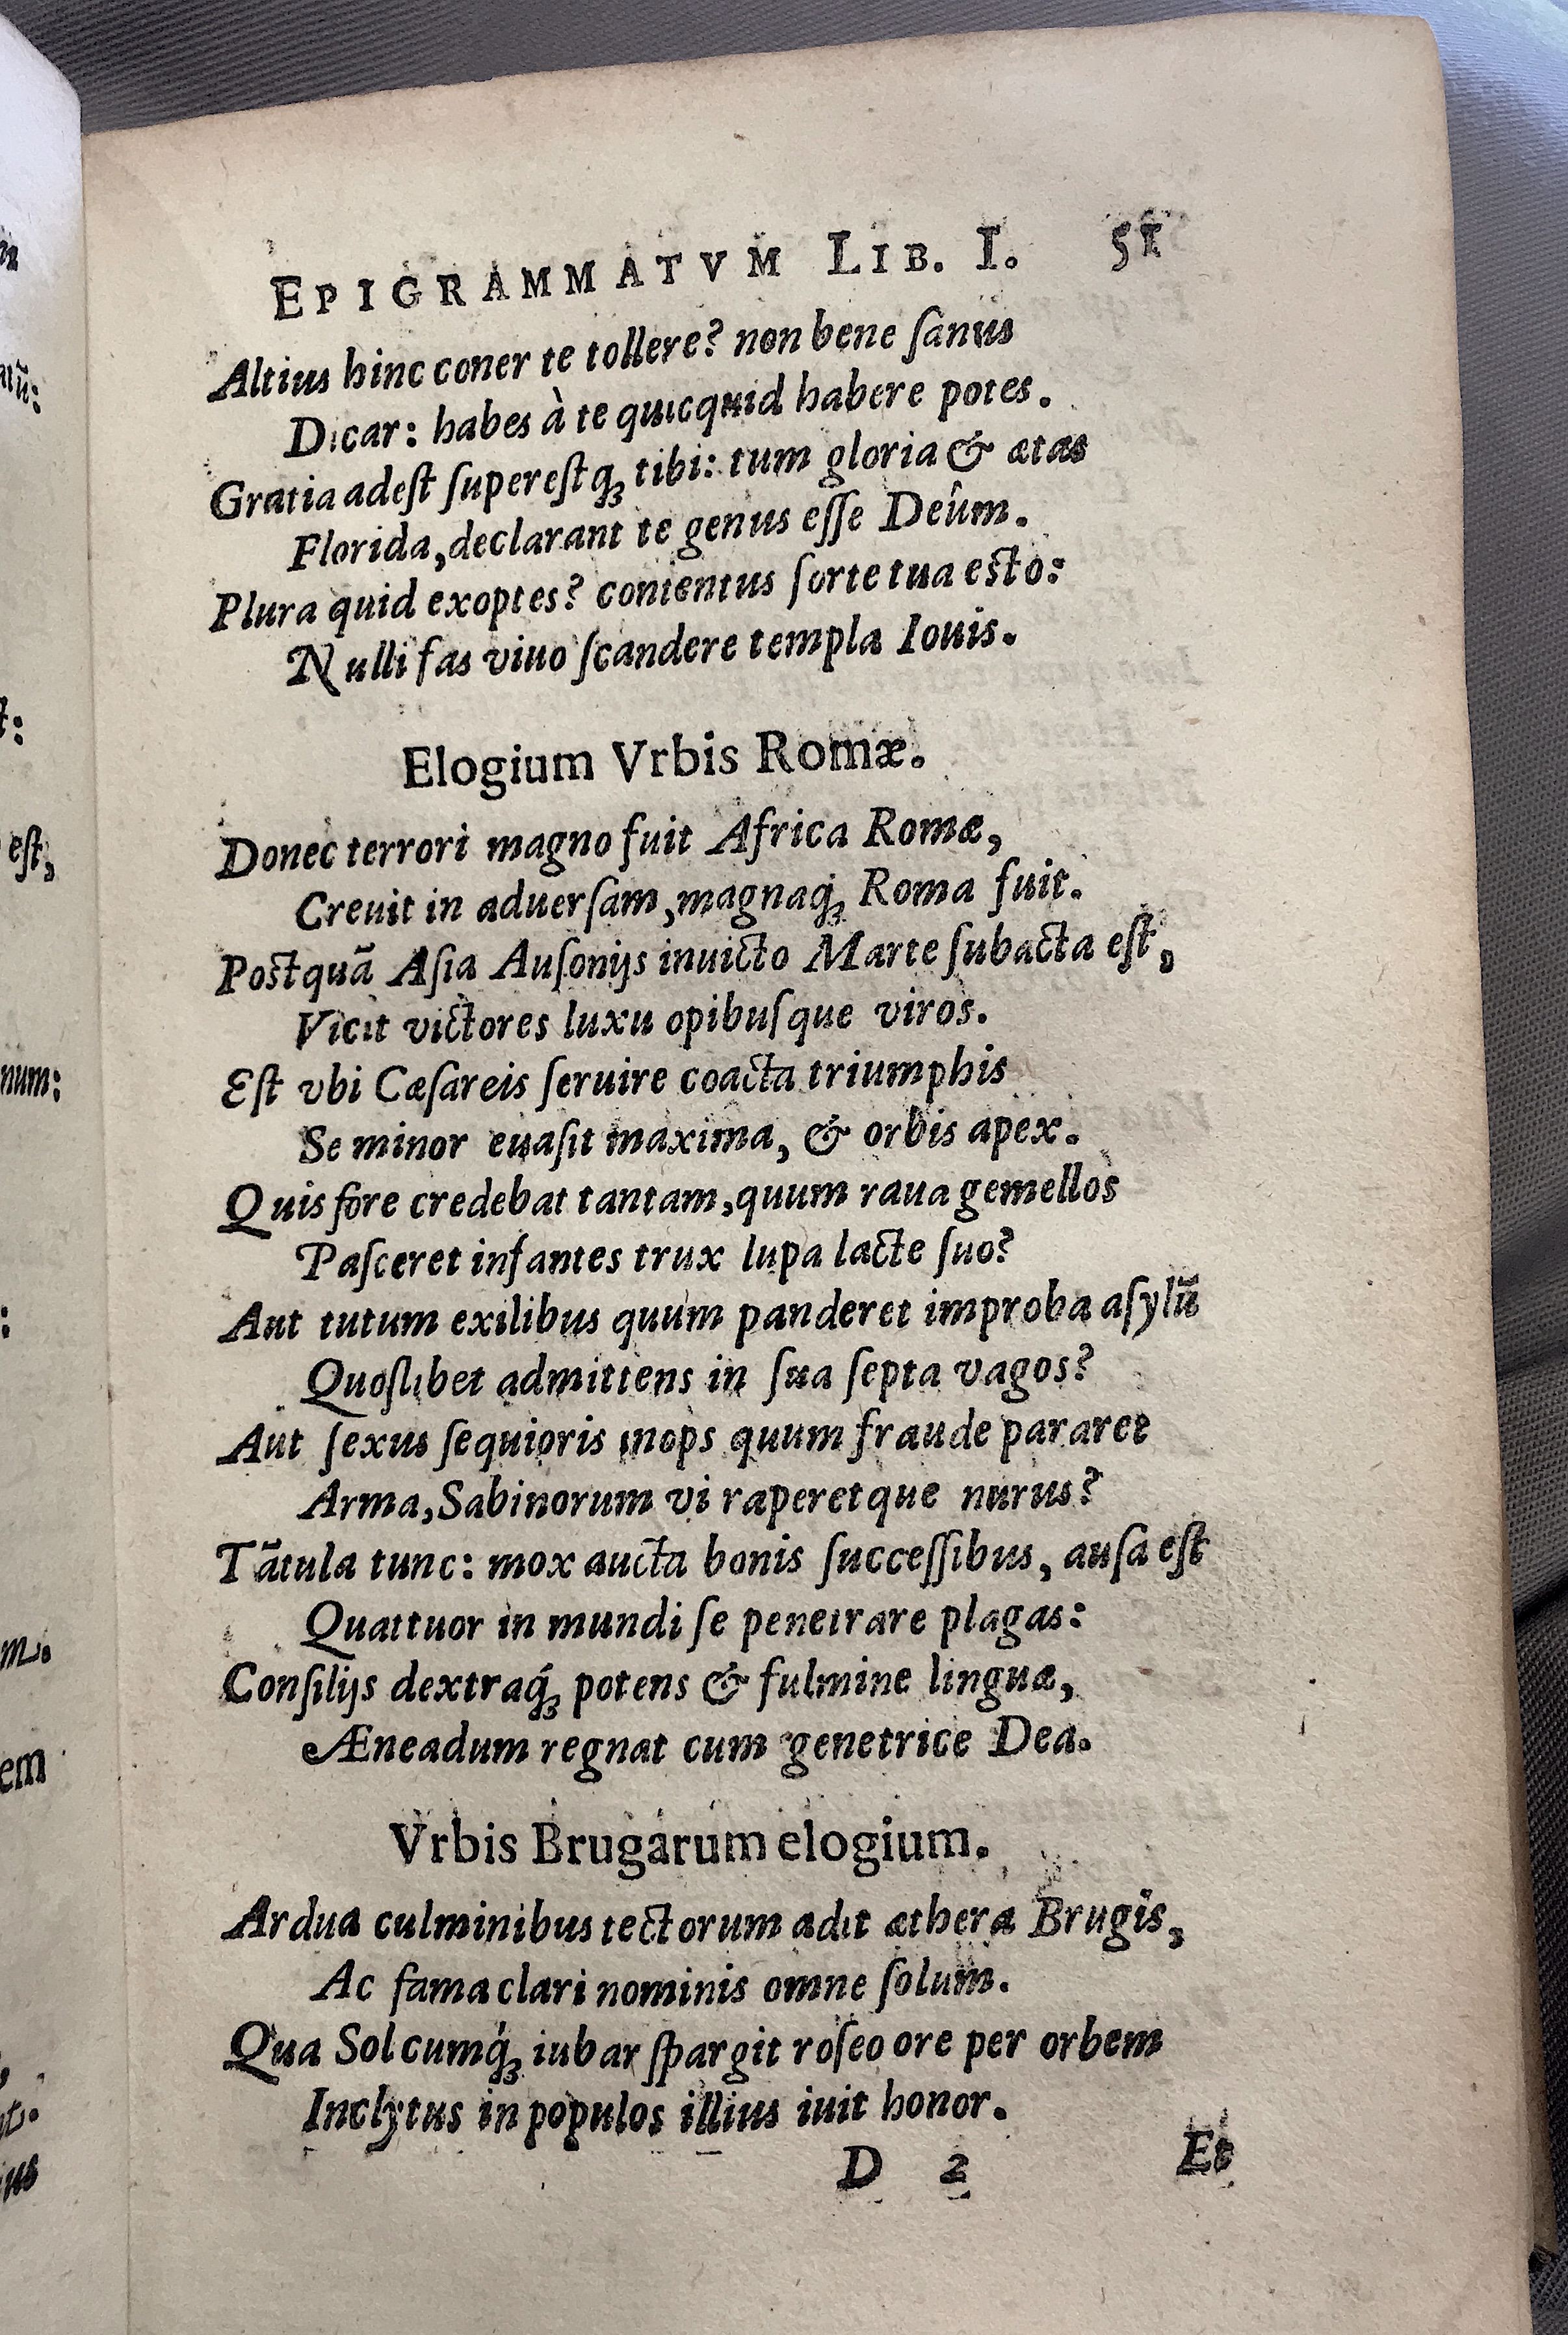 EPIGRAMMATVM LIB. I. 51
Altius hinc coner te tollere? non bene ſanus
Dicar: habes à te quicquid habere potes.
Gratia adeſt ſupereſtq́ꝫ tibi: tum gloria & ætas
Florida, declarant te genus eſſe Deûm.
Plura quid exoptes? contentus ſorte tua esto:
Nulli fas viuo ſcandere templa Iouis.
Elogium Vrbis Romæ.
Donec terrori magno fuit Africa Romæ,
Creuit in aduerſam, magnaq́ꝫ Roma fuit.
Postquã Aſia Auſonijs inuicto Marte ſubacta eſt,
Vicit victores luxu opibuſque viros.
Eſt vbi Cæſareis ſeruire coacta triumphis
Se minor euaſit maxima, & orbis apex.
Quis fore credebat tantam, quum raua gemellos
Paſceret infantes trux lupa lacte ſuo?
Aut tutum exilibus quum panderet improba aſylũ
Quoſlibet admittens in ſua ſepta vagos?
Aut ſexus ſequioris inops quum fraude pararet
Arma, Sabinorum vi raperetque nurus?
Tãtula tunc: mox aucta bonis ſucceſſibus, auſa eſt
Quattuor in mundi ſe penetrare plagas:
Conſilijs dextraq́ꝫ potens & fulmine linguæ,
Æneadum regnat cum genetrice Dea.
Vrbis Brugarum elogium.
Ardua culminibus tectorum adit æthera Brugis,
Ac fama clari nominis omne ſolum.
Qua Sol cumq́ꝫ iubar ſpargit roſeo ore per orbem
Inclytus in populos illius iuit honor.
D 2 Et
est:
eſt,
num:
em